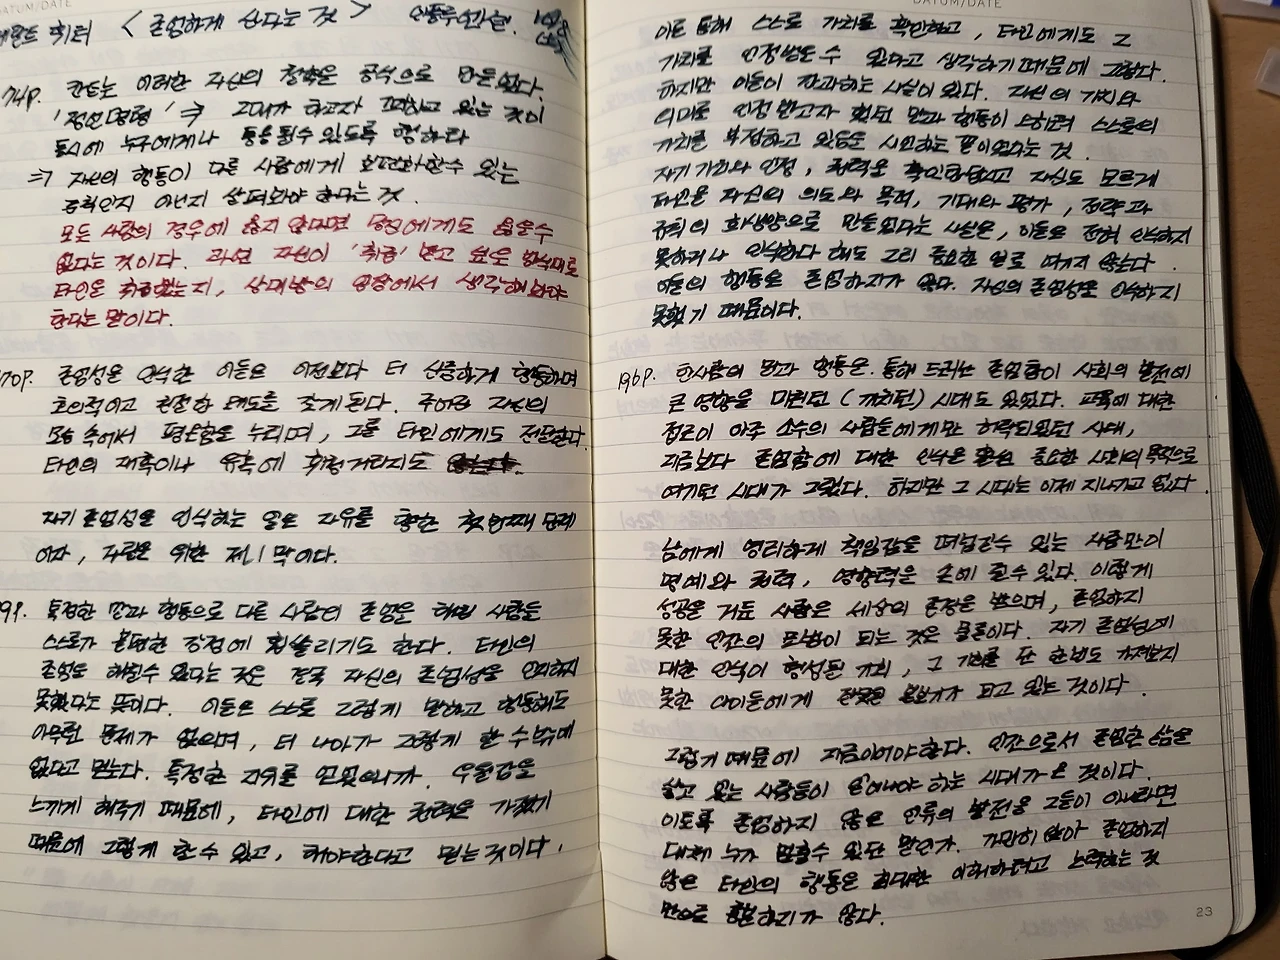 DATUM/DATE
휘터 < 존엄하게 산다는 것 >
74p. 칸트는 이러한 자신의 철학을 공식으로 만들었다.
'정언명령' ⇒ 그대가 하고자 꾀하고 있는 것이
동시에 누구에게나 통용될수 있도록 행하라
⇒ 자신의 행동이 다른 사람에게 보편화할수 있는
공칙인지 아닌지 살펴봐야 한다는 것.
모든 사람의 경우에 옳지 않다면 당신에게도 옳을수
없다는 것이다. 과연 자신이 '취급' 받고 싶은 방식대로
타인을 취급했는지, 상대방의 입장에서 생각해봐야
한다는 말이다.
170p. 존엄성을 인식한 이들은 이전보다 더 신중하게 행동하며
호의적이고 친절한 태도를 갖게 된다. 주어진 자신의
모습 속에서 평온함을 누리며, 그를 타인에게도 전달한다.
타인의 재촉이나 유혹에 휘청거리지도
자기 존엄성을 인식하는 일은 자유를 향한 첫 번째 단계
이자, 자립을 위한 제 1막이다.
특정한 말과 행동으로 다른 사람의 존엄을 해친 사람들
스로가 분명한 감정에 휩쓸리기도 한다. 타인의
존엄을 해칠수 있다는 것은 결국 자신의 존엄성을 인지하지
못했다는 뜻이다. 이들은 스스로 그렇게 말하고 행동해도
아무런 문제가 없으며, 더 나아가 그렇게 할 수밖에
없다고 믿는다. 특정한 지위를 얻었으니까. 우월감을
느끼게 해주기 때문에, 타인에 대한 권력을 가졌기
때문에 그렇게 할 수 있고, 해야 한다고 믿는 것이다.
DATUM/DATE
이를 통해 스스로 가치를 확인하고, 타인에게도 그
가치를 인정받을 수 있다고 생각하기 때문에 그렇다.
하지만 이들이 간과하는 사실이 있다. 자신의 가치와
의미를 인정 받고자 했던 말과 행동이 오히려 스스로의
가치를 부정하고 있음을 시인하는 꼴이었다는 것.
자기 가치와 인정, 권력을 확인하려고 자신도 모르게
타인을 자신의 의도와 목적, 기대와 평가, 전략과
규칙의 희생양으로 만들었다는 사실을, 이들은 전혀 인식하지
못하거나 인식한다 해도 그리 중요한 일로 여기지 않는다.
이들의 행동은 존엄하지가 않다. 자신의 존엄성을 인식하지
못했기 때문이다.
196p. 한사람의 말과 행동을 통해 드러난 존엄함이 사회의 발전에
큰 영향을 미치던 (가치던) 시대도 있었다. 교육에 대한
접근이 아주 소수의 사람들에게만 허락되었던 시대,
지금보다 존엄함에 대한 인식을 훨씬 중요한 사회의 목적으로
여기던 시대가 그랬다. 하지만 그 시대는 이제 지나가고 없다.
남에게 영리하게 책임감을 떠넘길수 있는 사람만이
명예와 권력, 영향력을 손에 쥘수 있다. 이렇게
성공을 거둔 사람은 세상의 존경을 받으며, 존엄하지
못한 인간의 표방이 되는 것은 물론이다. 자기 존엄성에
대한 인식이 형성될 기회, 그 기회를 단 한번도 가져보지
못한 아이들에게 잘못된 본보기가 되고 있는 것이다.
그렇기 때문에 지금이어야 한다. 인간으로서 존엄한 삶을
살고 있는 사람들이 일어나야 하는 시대가 온 것이다.
이토록 존엄하지 않은 인류의 발전을 그들이 아니라면
대체 누가 멈출수 있단 말인가. 가만히 앉아 존엄하지
않은 타인의 행동을 최대한 이해하려고 노력하는 것
만으로 충분하지가 않다.
23